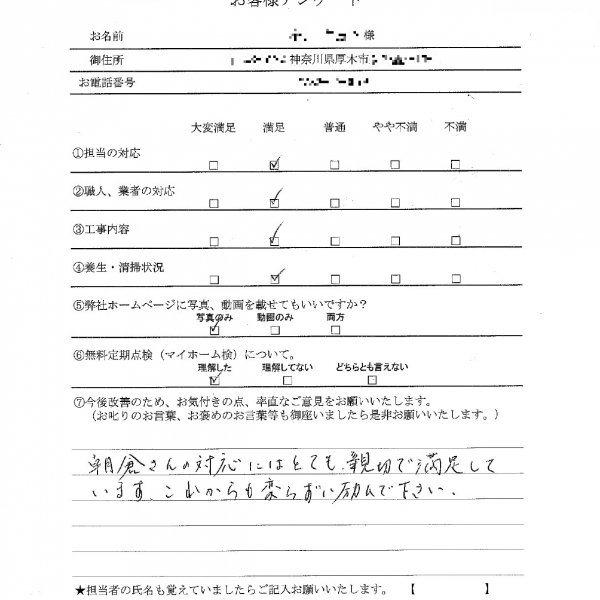 お客様アンケート
お名前 様
御住所 神奈川県厚木市
お電話番号
大変満足 満足 普通 やや不満 不満
①担当の対応 □ ☑ □ □ □
②職人、業者の対応 □ ☑ □ □ □
③工事内容 □ ☑ □ □ □
④養生・清掃状況 □ ☑ □ □ □
⑤弊社ホームページに写真、動画を載せてもいいですか？
写真のみ 動画のみ 両方
☑ □ □
⑥無料定期点検（マイホーム検）について。
理解した 理解してない どちらとも言えない
☑ □ □
⑦今後改善のため、お気付きの点、率直なご意見をお願いいたします。
（お叱りのお言葉、お褒めのお言葉等も御座いましたら是非お願いいたします。）
朝倉さんの対応にはとても、親切で満足して
います。これからも変らずに励んで下さい。
★担当者の氏名も覚えていましたらご記入お願いいたします。 【 】